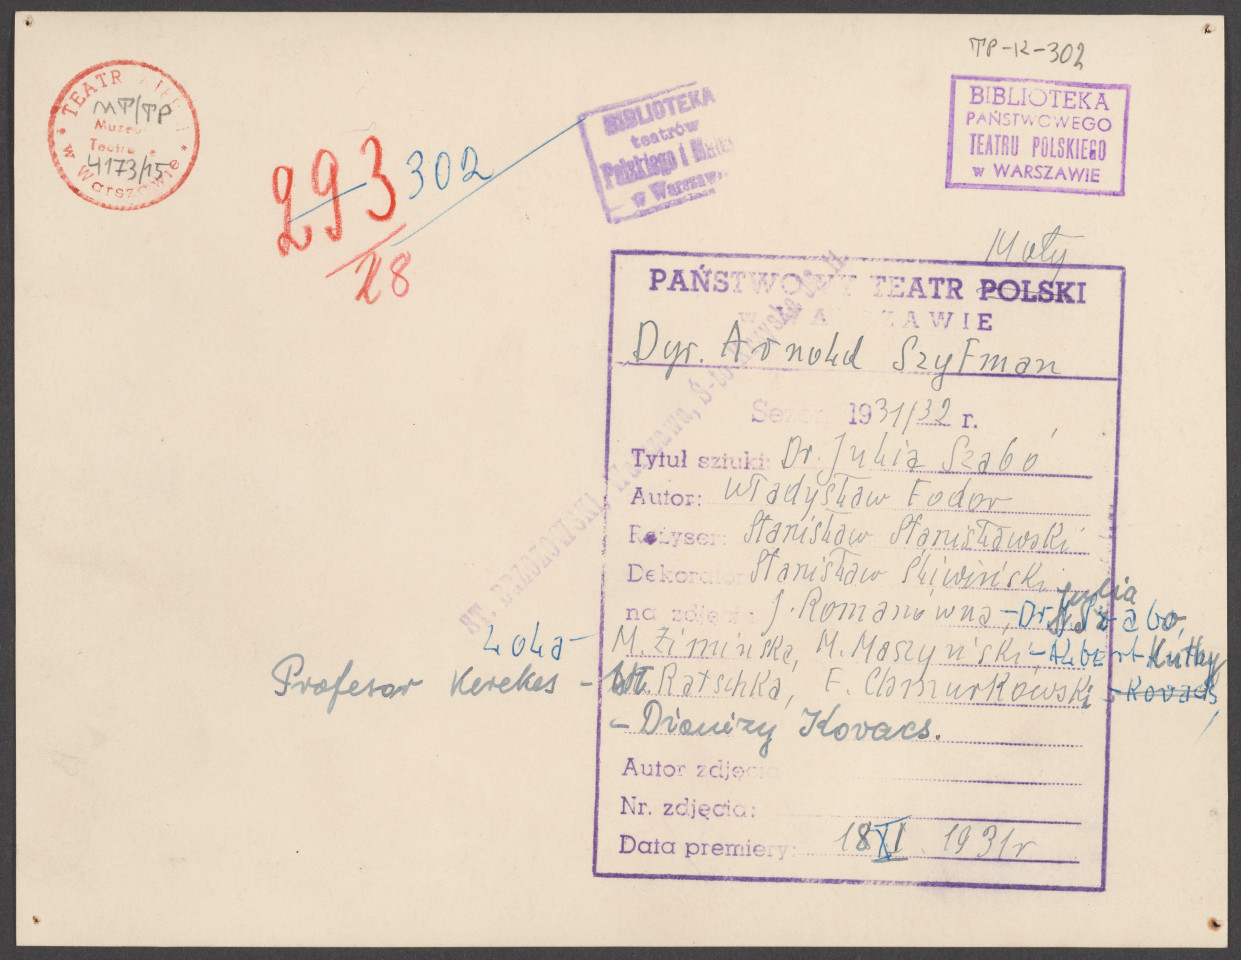 TP-12-302
TEATR
w Warszawie
MT/TP
Muzeum
4173/15
293 302
28
BIBLIOTEKA
teatrów
Polskiego i
w Warszaw
BIBLIOTEKA
PAŃSTWOWEGO
TEATRU POLSKIEGO
w WARSZAWIE
Mały
PAŃSTWOWY TEATR POLSKI
w WARSZAWIE
Dyr. Arnold Szyfman
Sezon 1931/32 r.
Tytuł sztuki: Dr. Julia Szabó
Autor: Władysław Fodor
Reżyser: Stanisław Stanisławski
Dekorator: Stanisław Śliwiński
Julia
na zdjęciu: J. Romanówna, – Dr. Szabo,
Lola – M. Zimińska, M. Maszyński, – Albert Kutby
Profesor Kerekes – Wł. Ratschka, E. Chmurkowski – Kovacs,
– Dionizy Kovacs.
Autor zdjęcia
Nr. zdjęcia:
Data premiery: 18 XI 1931 r